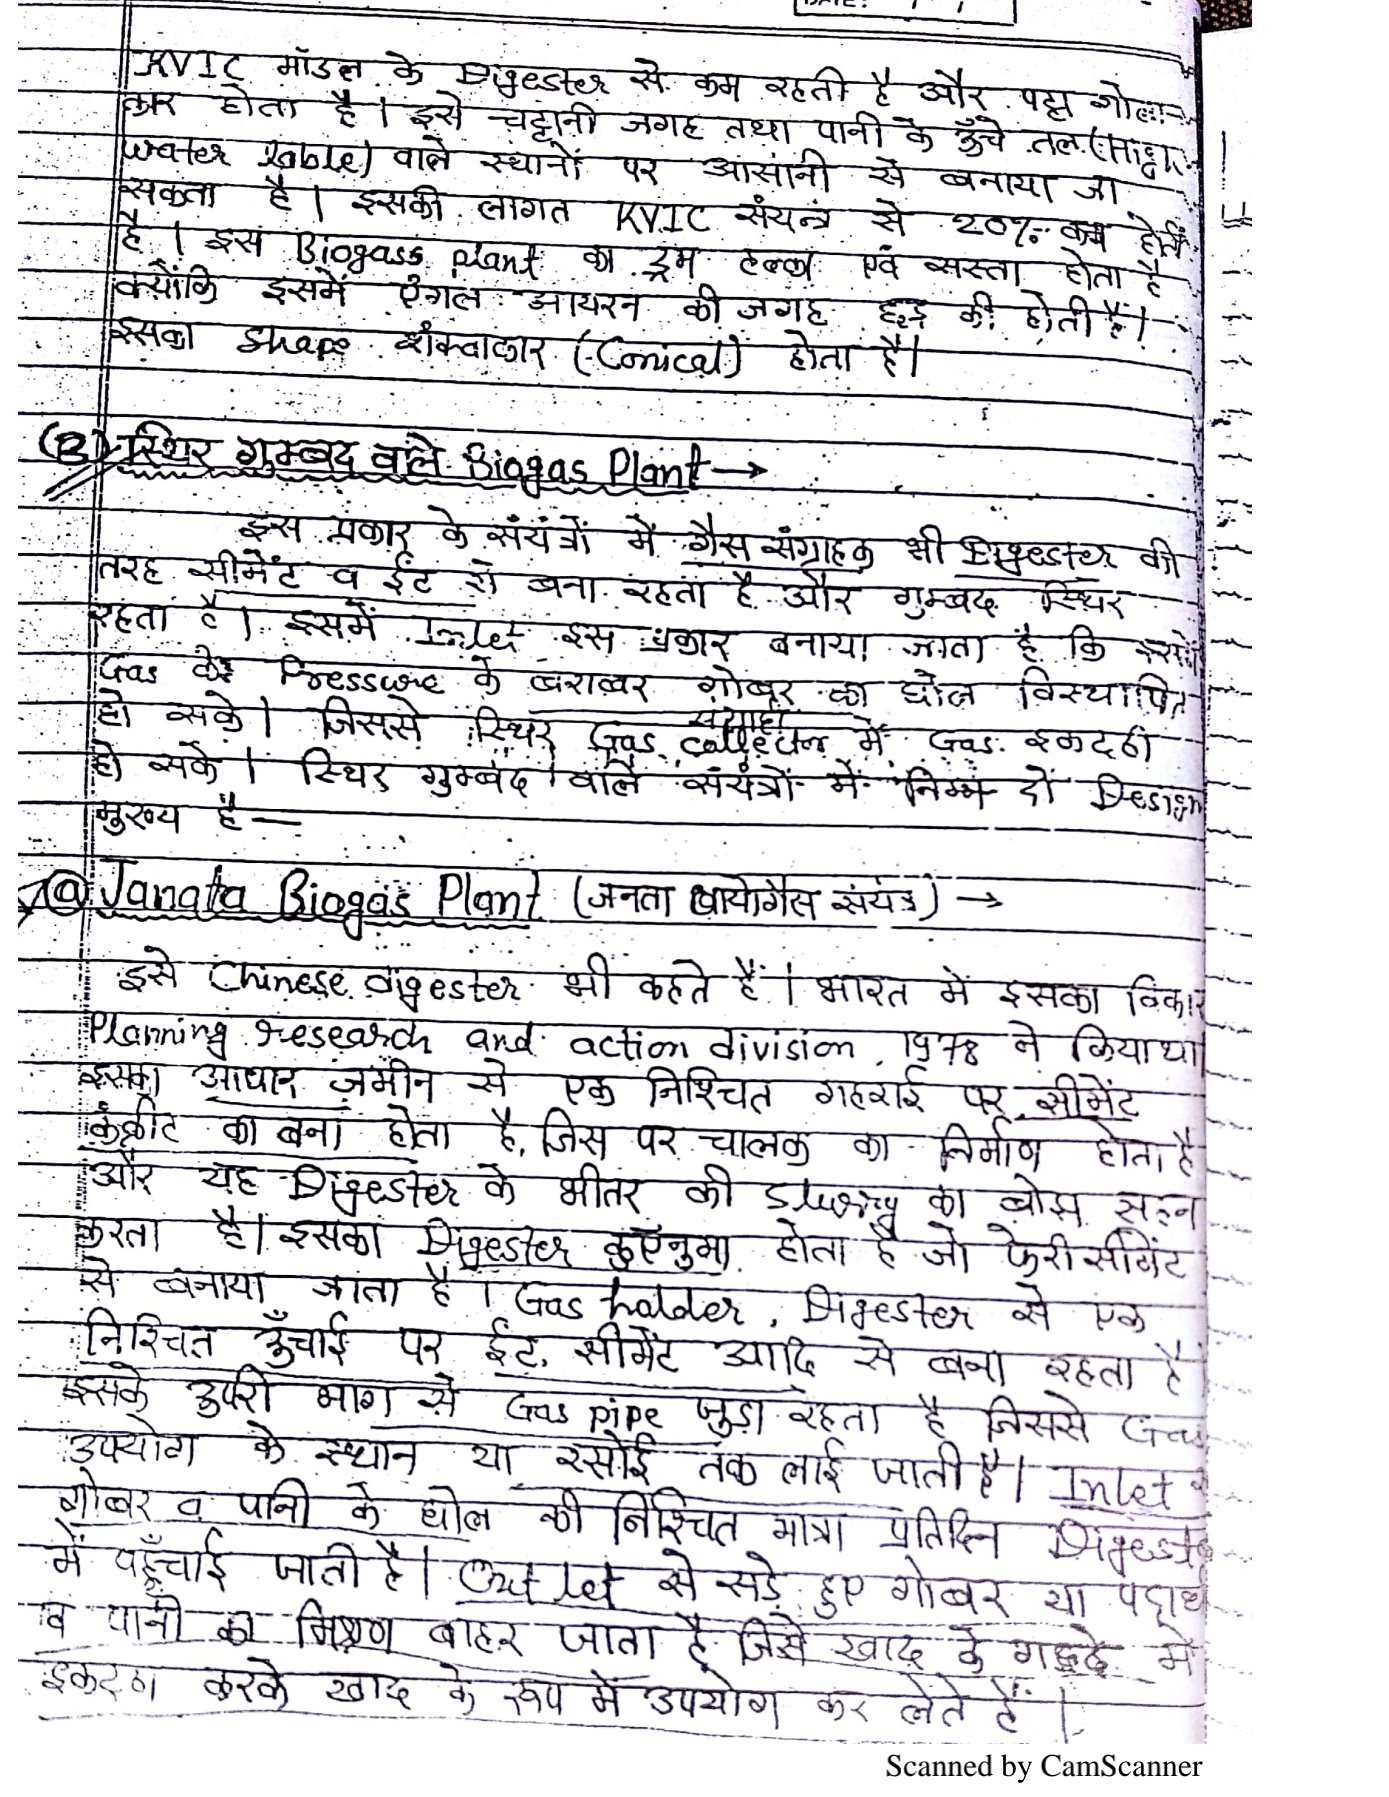 DATE:
KVIC मॉडल के Digester से कम रहती है और यह गोला-
कार होता है। इसे चट्टानी जगह तथा पानी के ऊँचे तल
water table) वाले स्थानों पर आसानी से बनाया जा
सकता है। इसकी लागत KVIC संयन्त्र से 20% कम होती
है। इस Biogass plant का ड्रम हल्का एवं सस्ता होता है
क्योंकि इसमें एंगल आयरन की जगह छड़ की होती है।
इसका shape शंक्वाकार (Conical) होता है।
(B) स्थिर गुम्बद वाले Biogas Plant →
इस प्रकार के संयंत्रों में गैस संग्राहक भी Digester की
तरह सीमेंट व ईंट से बना रहता है और गुम्बद स्थिर
रहता है। इसमें Inlet इस प्रकार बनाया जाता है कि
Gas के Pressure के बराबर गोबर का घोल विस्थापित
हो सके। जिससे स्थिर Gas collector में Gas इकट्ठी
संग्राहक
हो सके। स्थिर गुम्बद वाले संयंत्रों में निम्न दो Design
मुख्य है—
(a) Janata Biogas Plant (जनता बायोगैस संयंत्र) →
इसे Chinese digester भी कहते हैं। भारत में इसका विकास
Planning research and action division, 1978 ने किया था
इसका आधार जमीन से एक निश्चित गहराई पर सीमेंट
कंक्रीट का बना होता है, जिस पर चालक का निर्माण होता है
और यह Digester के भीतर की slurry का बोझ सहन
करता है। इसका Digester कुएँनुमा होता है जो फेरी सीमेंट
से बनाया जाता है। Gas holder, Digester से एक
निश्चित ऊँचाई पर ईंट, सीमेंट आदि से बना रहता है
इसके ऊपरी भाग से Gas pipe जुड़ा रहता है जिससे Gas
उपयोग के स्थान या रसोई तक लाई जाती है। Inlet से
गोबर व पानी के घोल की निश्चित मात्रा प्रतिदिन Digester
में पहुँचाई जाती है। Out let से सड़े हुए गोबर या पदार्थ
व पानी का मिश्रण बाहर जाता है जिसे खाद के गड्ढे में
इकट्ठा करके खाद के रूप में उपयोग कर लेते हैं।
Scanned by CamScanner